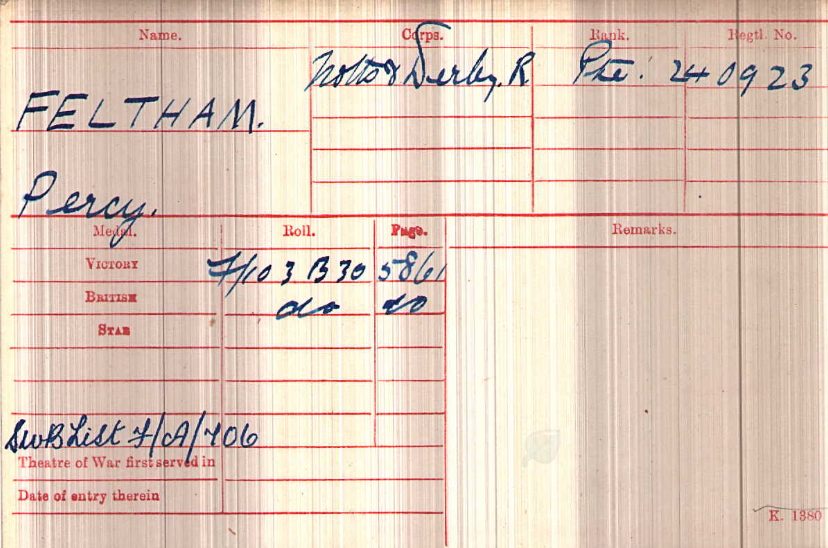 Name. Corps. Rank. Regtl. No.
Notts & Derby. R Pte. 240923
FELTHAM.
Percy.
Medal. Roll. Page. Remarks.
VICTORY F/103 B30 5861
BRITISH do do
STAR
SWB List F/A/706
Theatre of War first served in
Date of entry therein
K. 1380